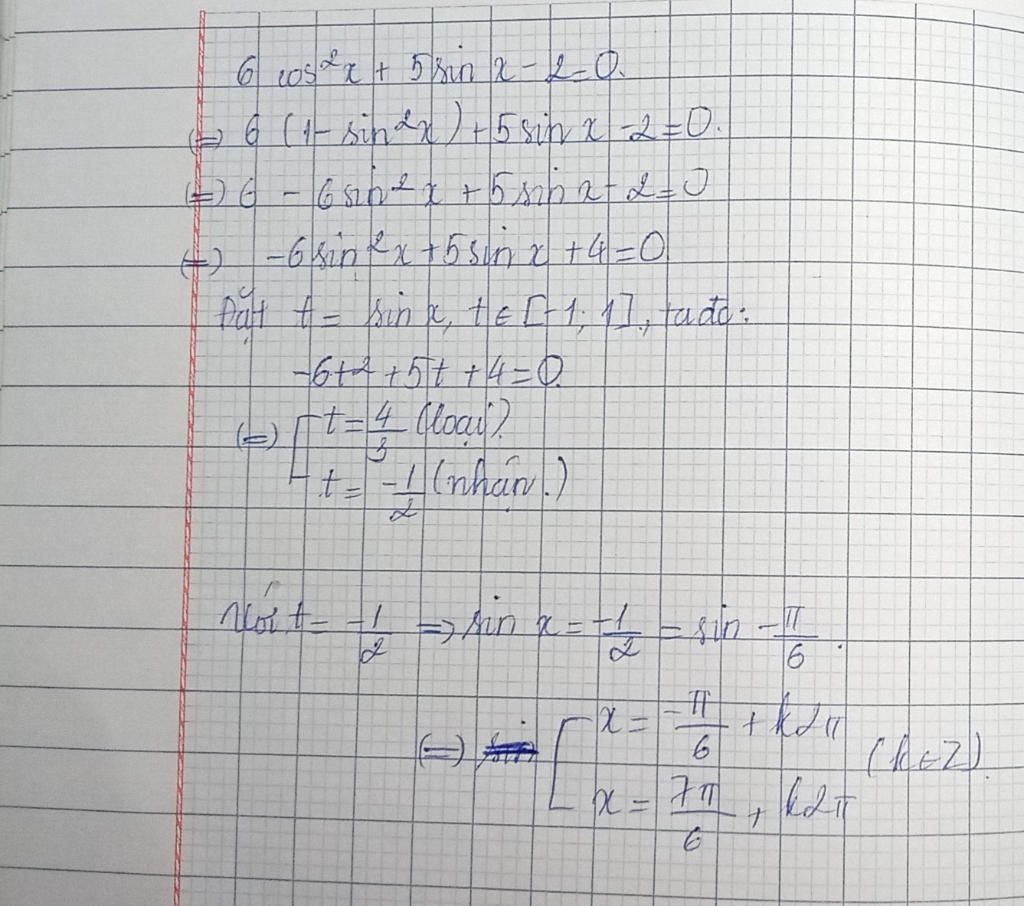 6 cos²x + 5 sin x - 2 = 0.
(=) 6 (1 - sin²x) + 5 sin x - 2 = 0.
(=) 6 - 6 sin²x + 5 sin x - 2 = 0
(=) -6 sin²x + 5 sin x + 4 = 0
Đặt t = sin x, t ∈ [-1; 1], ta đc:
-6t² + 5t + 4 = 0.
(=) [ t = 4/3 (loại).
t = -1/2 (nhận.)
Với t = -1/2 => sin x = -1/2 = sin -π/6.
(=) [ x = -π/6 + k2π
x = 7π/6 + k2π (k∈Z).